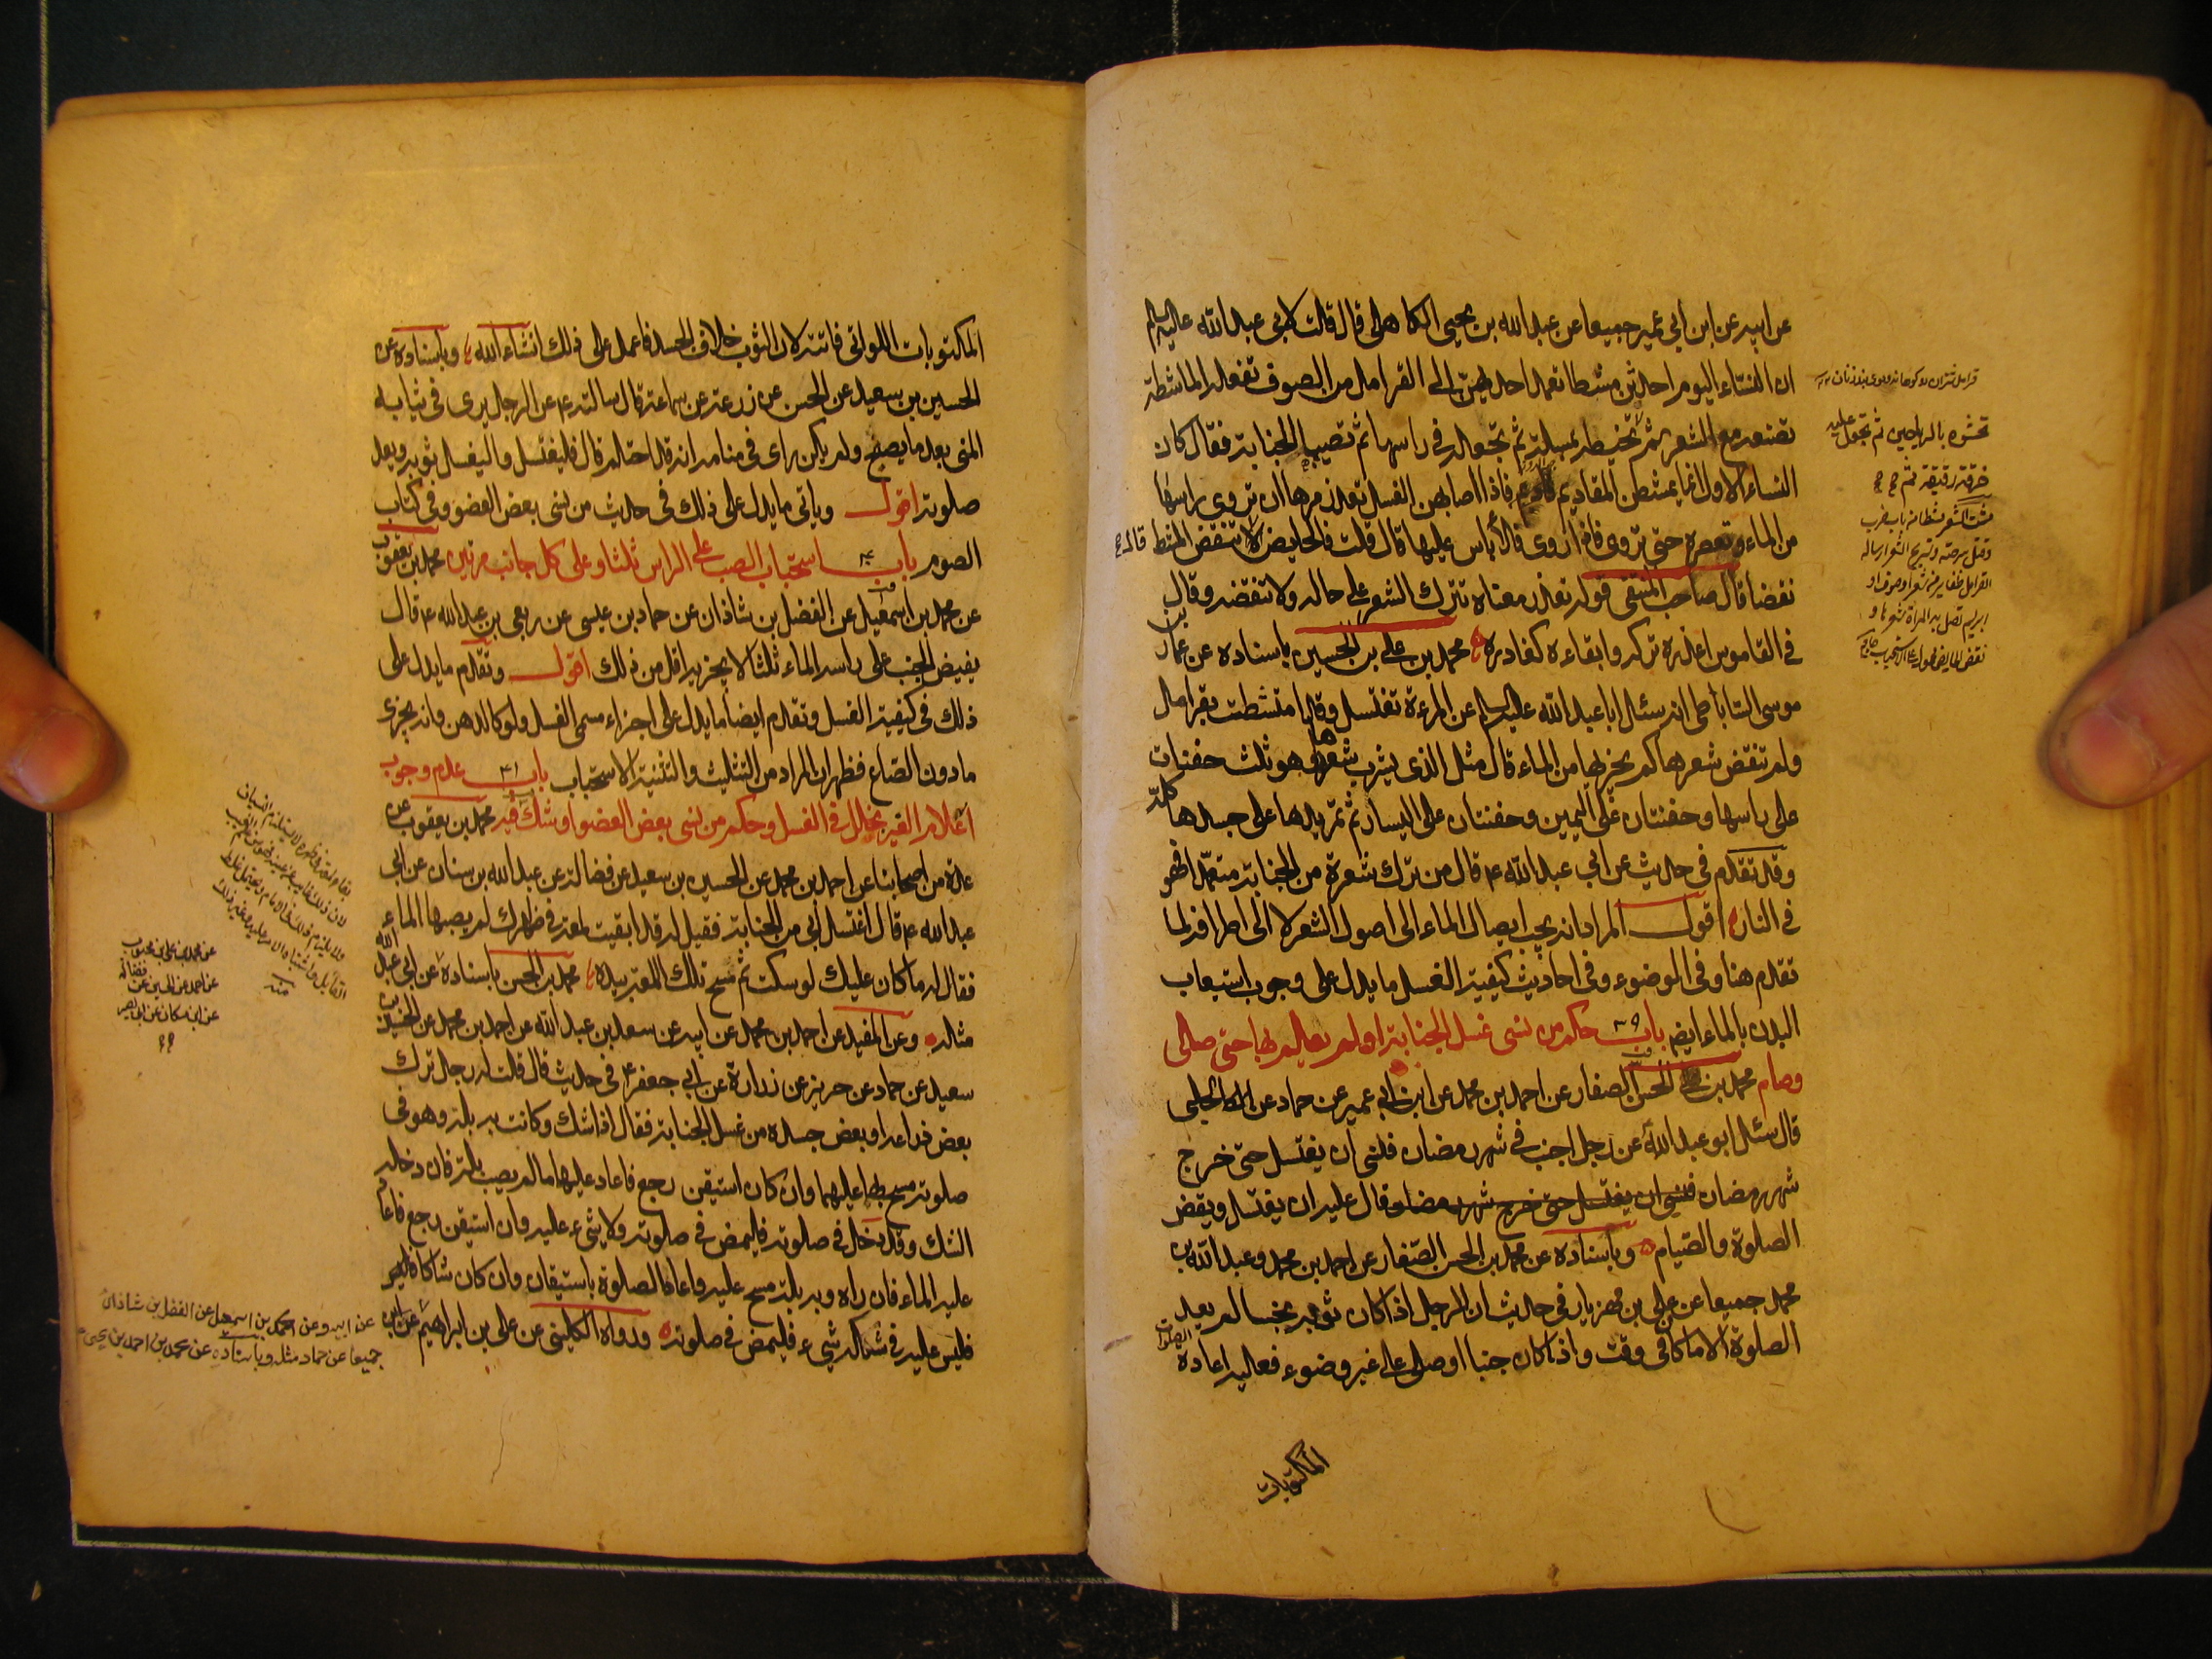 عن ابيه عن ابن ابي عمير جميعا عن عبد الله بن يحيى الكاهلى قال قلت لابى عبد الله عليه السلم
ان النساء اليوم احدثن مشطا تعمد احديهن الى القرامل من الصوف تفعله الماشطة
تصنعه مع الشعر ثم تحشوه بالرياحين ثم تجعل عليه خرقة رقيقة ثم تخيطه بمسلة ثم تجعله في راسها ثم تصيبها الجنابة فقال كان
النساء الاول انما يمتشطن المقاديم فاذا اصابهن الغسل تغدر مرها ان تروى راسها
من الماء وتعصره حتى تروى فاذا روى فلا بأس عليها قال قلت فالحايض قال تنقض المشط
نقضا قال صاحب المنتقى قوله تغدر معناه تترك الشعر على حاله ولا تنقضه وقال
في القاموس اغدره تركه وابقاءه كغادره محمد بن على بن الحسين باسناده عن عمار بن
موسى الساباطى انه سئل ابا عبد الله عليه السلم عن المرءة تغتسل وقد امتشطت بقرامل
ولم تنقض شعرها كم يجزيها من الماء قال مثل الذى يشرب شعرها وهو ثلث حفنات
على راسها وحفنتان على اليمين وحفنتان على اليسار ثم تمر يدها على جسدها كله
وقد تقدم في حديث عن ابي عبد الله ع قال من ترك شعرة من الجنابة متعمدا فهو
في النار اقول المراد انه يجب ايصال الماء الى اصول الشعر لا الى اطرافه لما
تقدم هنا وفي الوضوء وفى احاديث كيفية الغسل ما يدل على وجوب استيعاب
البدن بالماء ايض باب ٣٩ حكم من نسى غسل الجنابة او لم يعلم بها حتى صلى
وصام محمد بن الحسن الصفار عن احمد بن محمد عن ابن ابي عمير عن حماد عن الحلبي
قال سئل ابو عبد الله عن رجل اجنب في شهر رمضان فنسى ان يغتسل حتى خرج
شهر رمضان فنسى ان يغتسل حتى خرج شهر رمضان قال عليه ان يغتسل ويقض
الصلوة والصيام وباسناده عن محمد بن الحسن الصفار عن احمد بن محمد وعبد الله بن
محمد جميعا عن على بن مهزيار في حديث ان الرجل اذا كان ثوبه نجسا لم يعد
الصلوة الا ما كان في وقت واذا كان جنبا او صلى على غير وضوء فعليه اعادة الصلوات
المكتوبات
قرامل
تحشوه بالرياحين ثم تجعل عليه
خرقة رقيقة ثم صح
المكتوبات اللواتى فاتته لان الثوب خلاف الجسد فاعمل على ذلك انشاء الله وباسناده عن
الحسين بن سعيد عن الحسن عن زرعة عن سماعة قال سالته ع عن الرجل يرى في ثيابه
المنى بعد ما يصبح ولم يكن راى في منامه انه قد احتلم قال فليغتسل وليغسل ثوبه ويعد
صلوته اقول وياتى ما يدل على ذلك في حديث من نسى بعض العضو وفى كتاب
الصوم باب ٤٠ استحباب الصب على الراس ثلثا وعلى كل جانب مرتين محمد بن يعقوب
عن محمد بن اسمعيل عن الفضل بن شاذان عن حماد بن عيسى عن ربعى بن عبد الله ع قال
يفيض الجنب على راسه الماء ثلثا لا يجزيه اقل من ذلك اقول وتقدم ما يدل على
ذلك في كيفية الغسل وتقدم ايضا ما يدل على اجزاء مسمى الغسل ولو كالدهن وانه يجزى
ما دون الصاع فظهر ان المراد من التثليث والتثنية الاستحباب باب ٤١ عدم وجوب
اعلام الغير بخلل في الغسل وحكم من نسى بعض العضو او شك فيه محمد بن يعقوب عن
عدة من اصحابنا عن احمد بن محمد عن الحسين بن سعيد عن فضالة عن عبد الله بن سنان عن ابي
عبد الله ع قال اغتسل ابي من الجنابة فقيل له قد ابقيت لمعة في ظهرك لم يصبها الماء
فقال له ما كان عليك لو سكت ثم مسح تلك اللمعة بيده محمد بن الحسن باسناده عن ابي عبد الله
مثله وعن المفيد عن احمد بن محمد عن ابيه عن سعد بن عبد الله عن احمد بن محمد عن الحسين بن
سعيد عن حماد عن حريز عن زرارة عن ابي جعفر ع في حديث قال قلت له رجل ترك
بعض ذراعه او بعض جسده من غسل الجنابة فقال اذا شك وكانت به بلة وهو فى
صلوته مسح بها عليهما وان كان استيقن رجع فاعاد عليهما ما لم يصب بلة فان دخله
الشك وقد دخل في صلوته فليمض في صلوته ولا شيء عليه وان استيقن رجع فاعاد
عليه الماء فان راه وبه بلة مسح عليه واعاد الصلوة باستيقان وان كان شاكا
فليس عليه في شكه شيء فليمض في صلوته ورواه الكلينى عن على بن ابراهيم
عن ابيه وعن محمد بن اسمعيل عن الفضل بن شاذان
جميعا عن حماد مثله وباسناده عن محمد بن احمد بن يحيى
عن محمد بن على بن محبوب
عن احمد عن الحسين عن فضالة
عن ابن مسكان عن ابي بصير